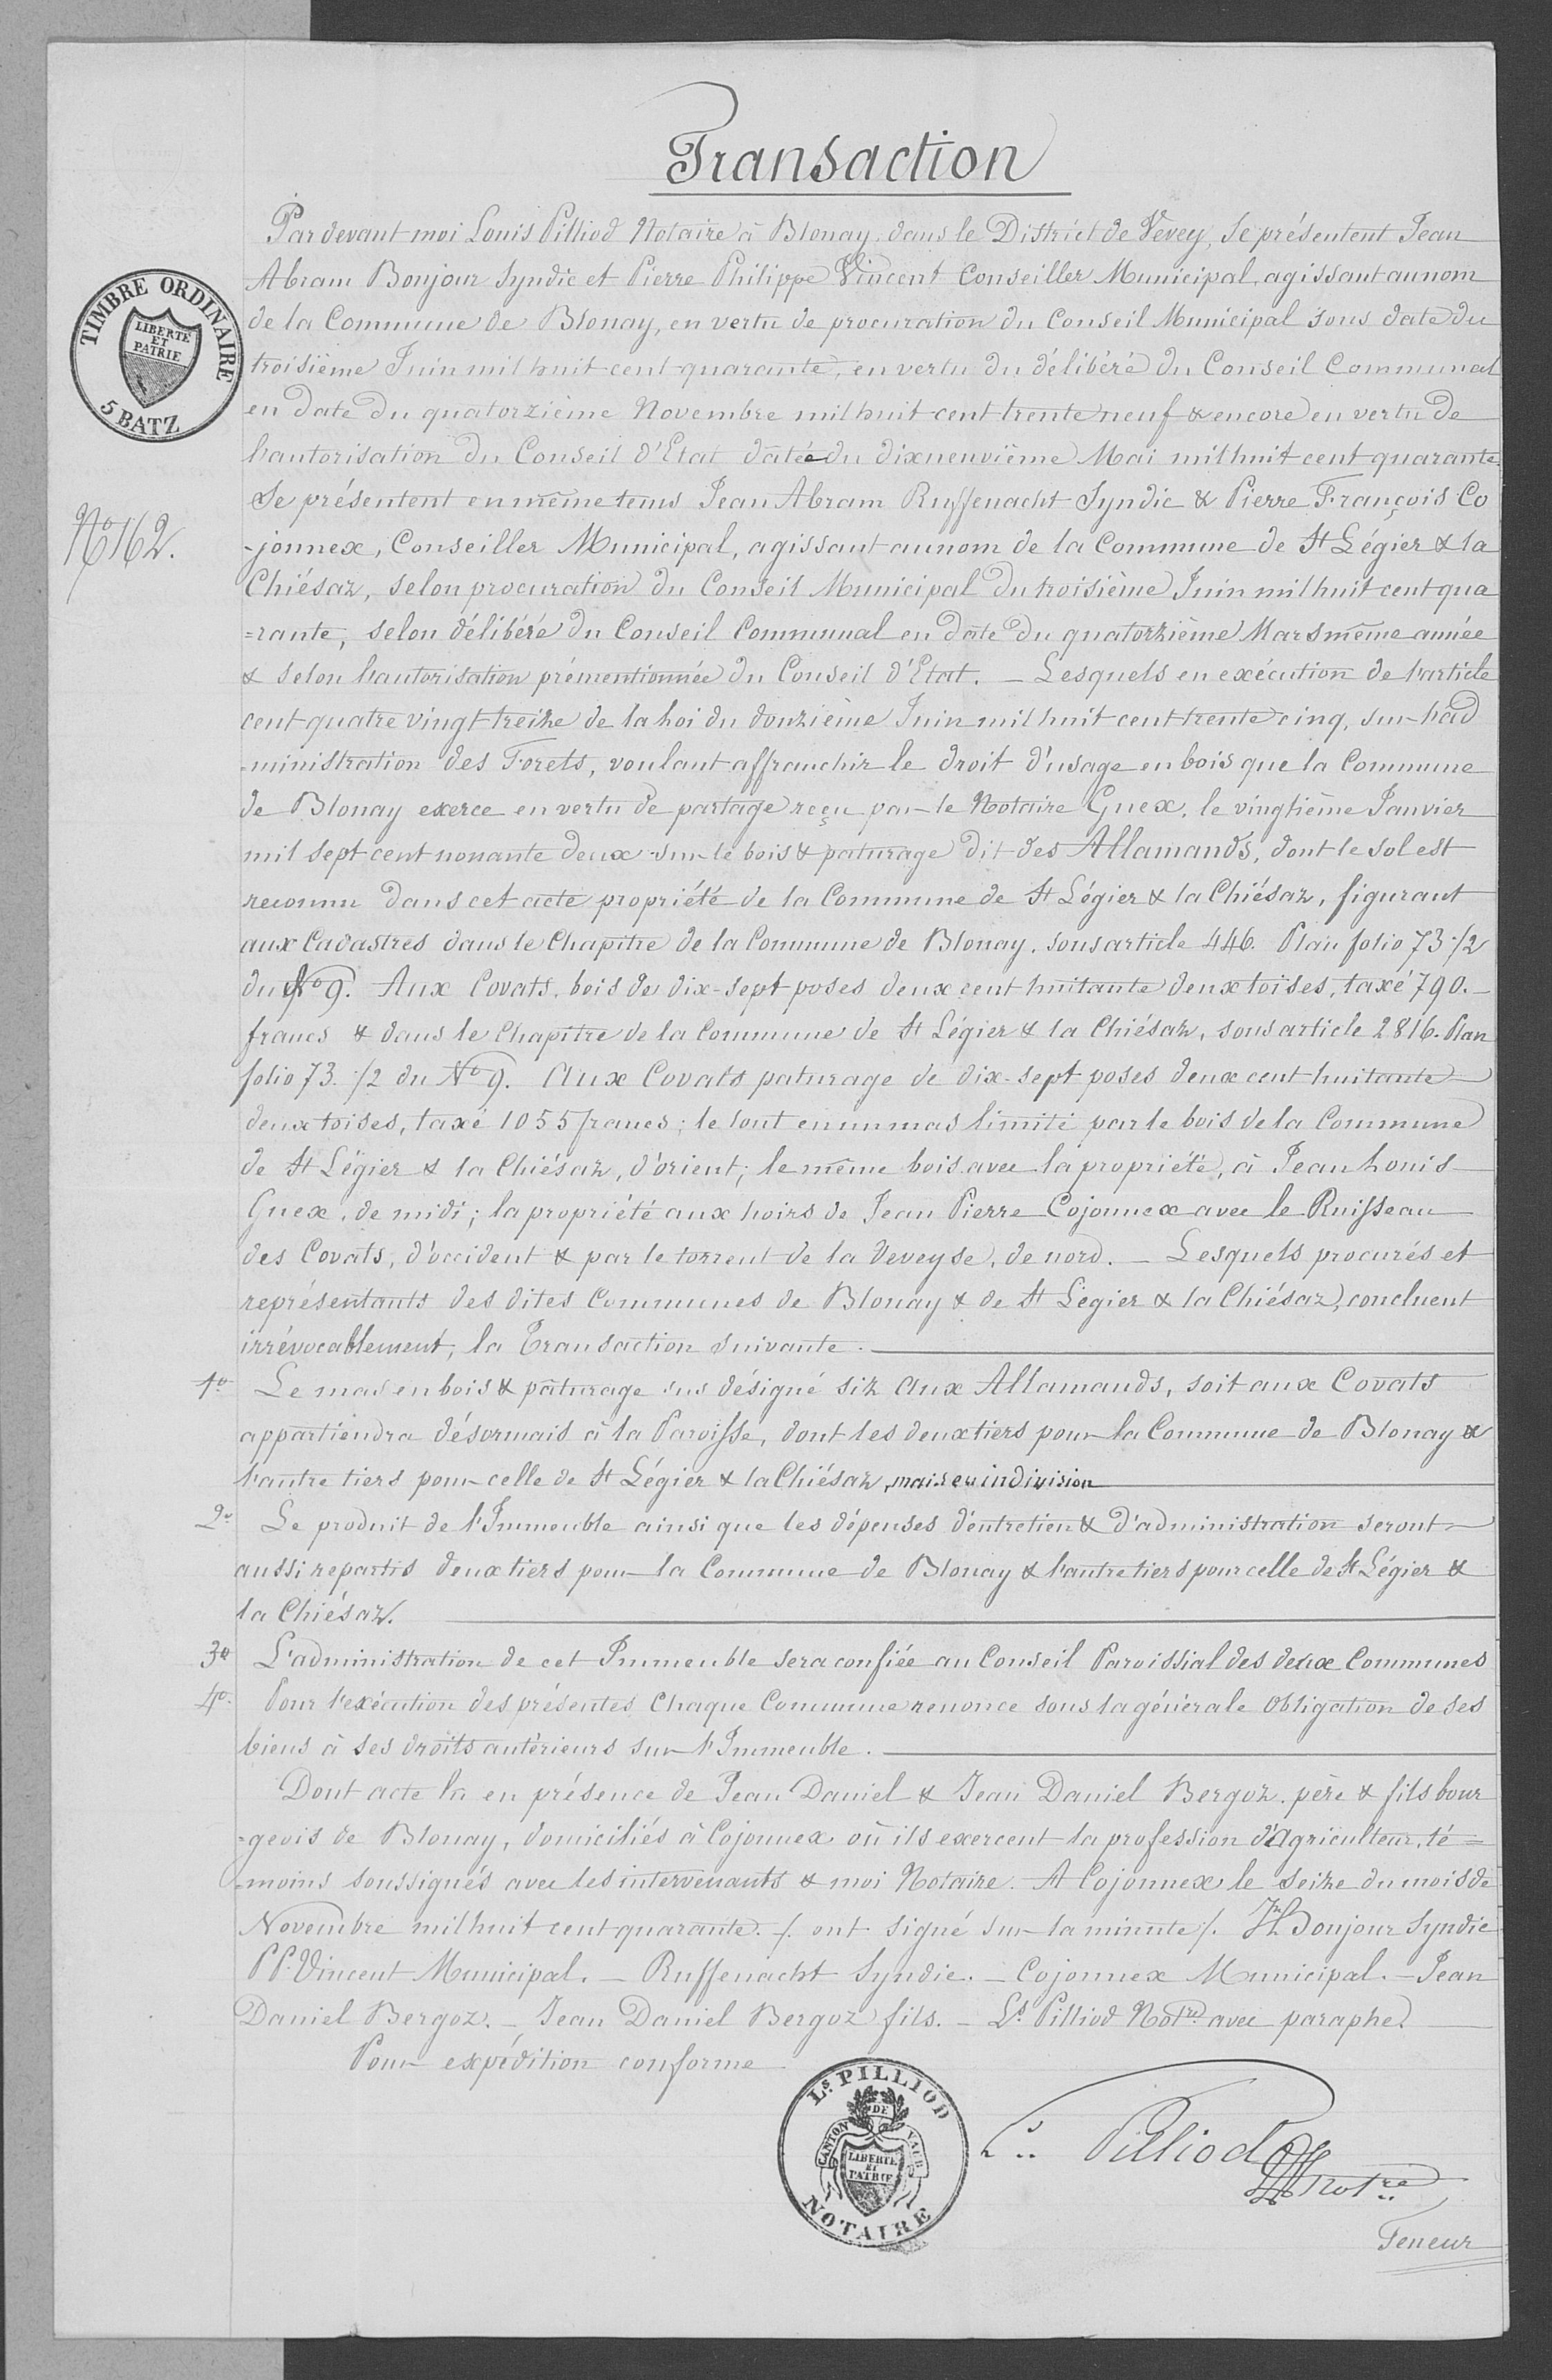 Transaction
Par devant moi Louis Pilliod Notaire à Blonay, dans le District de Vevey, se présentent Jean
Abram Bonjour Syndic et Pierre Philippe Vincent Conseiller Municipal, agissant au nom
de la Commune de Blonay, en vertu de procuration du Conseil Municipal sous date du
troisième Juin mil huit cent quarante, en vertu du délibéré du Conseil Communal
en date du quatorzième Novembre mil huit cent trente neuf & encore en vertu de
l'autorisation du Conseil d'Etat datée du dixneuvième Mai mil huit cent quarante.
Se présentent en même tems Jean Abram Ruffenacht Syndic & Pierre François Co
-jonnex, Conseiller Municipal, agissant au nom de la Commune de St Légier & la
Chiésaz, selon procuration du Conseil Municipal du troisième Juin mil huit cent qua
=rante, selon délibéré du Conseil Communal en date du quatorzième Mars même année
& selon l'autorisation prémentionnée du Conseil d'Etat. — Lesquels en exécution de l'article
cent quatre vingt treize de la loi du douzième Juin mil huit cent trente cinq, sur l'ad
-ministration des Forets, voulant affranchir le droit d'usage en bois que la Commune
de Blonay exerce en vertu de partage reçu par le Notaire Guex, le vingtième Janvier
mil sept cent nonante deux sur le bois & paturage dit des Allamands, dont le sol est
reconnu dans cet acte propriété de la Commune de St Légier & la Chiésaz, figurant
aux Cadastres dans le Chapitre de la Commune de Blonay, sous article 446. Plan folio 73 1/2
du No 9. Aux Covats, bois de dix-sept poses deux cent huitante deux toises, taxé 790.—
francs & dans le Chapitre de la Commune de St Légier & la Chiésaz, sous article 2816. Plan
folio 73. 1/2 du No 9. Aux Covats paturage de dix-sept poses deux cent huitante
deux toises, taxé 1055 francs; le tout en un mas limité par le bois de la Commune
de St Légier & la Chiésaz, d'orient; le même bois avec la propriété, à Jean Louis
Guex, de midi; la propriété aux hoirs de Jean Pierre Cojonnex avec le Ruisseau
des Covats, d'occident & par le torrent de la Veveyse, de nord. — Lesquels procurés et
représentants des dites Communes de Blonay & de St Légier & la Chiésaz, concluent
irrévocablement, la Transaction suivante.
1o Le mas en bois & pâturage sus désigné siz aux Allamands, soit aux Covats
appartiendra désormais à la Paroisse, dont les deux tiers pour la Commune de Blonay &
l'autre tiers pour celle de St Légier & la Chiésaz, mais en indivision
2o Le produit de l'Immeuble ainsi que les dépenses d'entretien & d'administration seront
aussi repartis deux tiers pour la Commune de Blonay & l'autre tiers pour celle de St Légier &
la Chiésaz.
3o L'administration de cet Immeuble sera confiée au Conseil Paroissial des deux Communes
4o Pour l'exécution des présentes Chaque Commune renonce sous la générale Obligation de ses
biens à ses droits antérieurs sur l'Immeuble.
Dont acte lu en présence de Jean Daniel & Jean Daniel Bergoz, père & fils bour
=geois de Blonay, domiciliés à Cojonnex où ils exercent la profession d'Agriculteur, té=
=moins soussignés avec les intervenants & moi Notaire. A Cojonnex le seize du mois de
Novembre mil huit cent quarante. /. ont signé sur la minute /. Bonjour Syndic
PP. Vincent Municipal. — Ruffenacht Syndic. — Cojonnex Municipal. — Jean
Daniel Bergoz. — Jean Daniel Bergoz fils. — Ls Pilliod Notre avec paraphe.
Pour expédition conforme
Ls Pilliod
notre
Teneur
TIMBRE ORDINAIRE
LIBERTÉ
ET
PATRIE
5 BATZ
No 162.
Ls. PILLIOD
CANTON DE VAUD
LIBERTÉ
ET
PATRIE
NOTAIRE